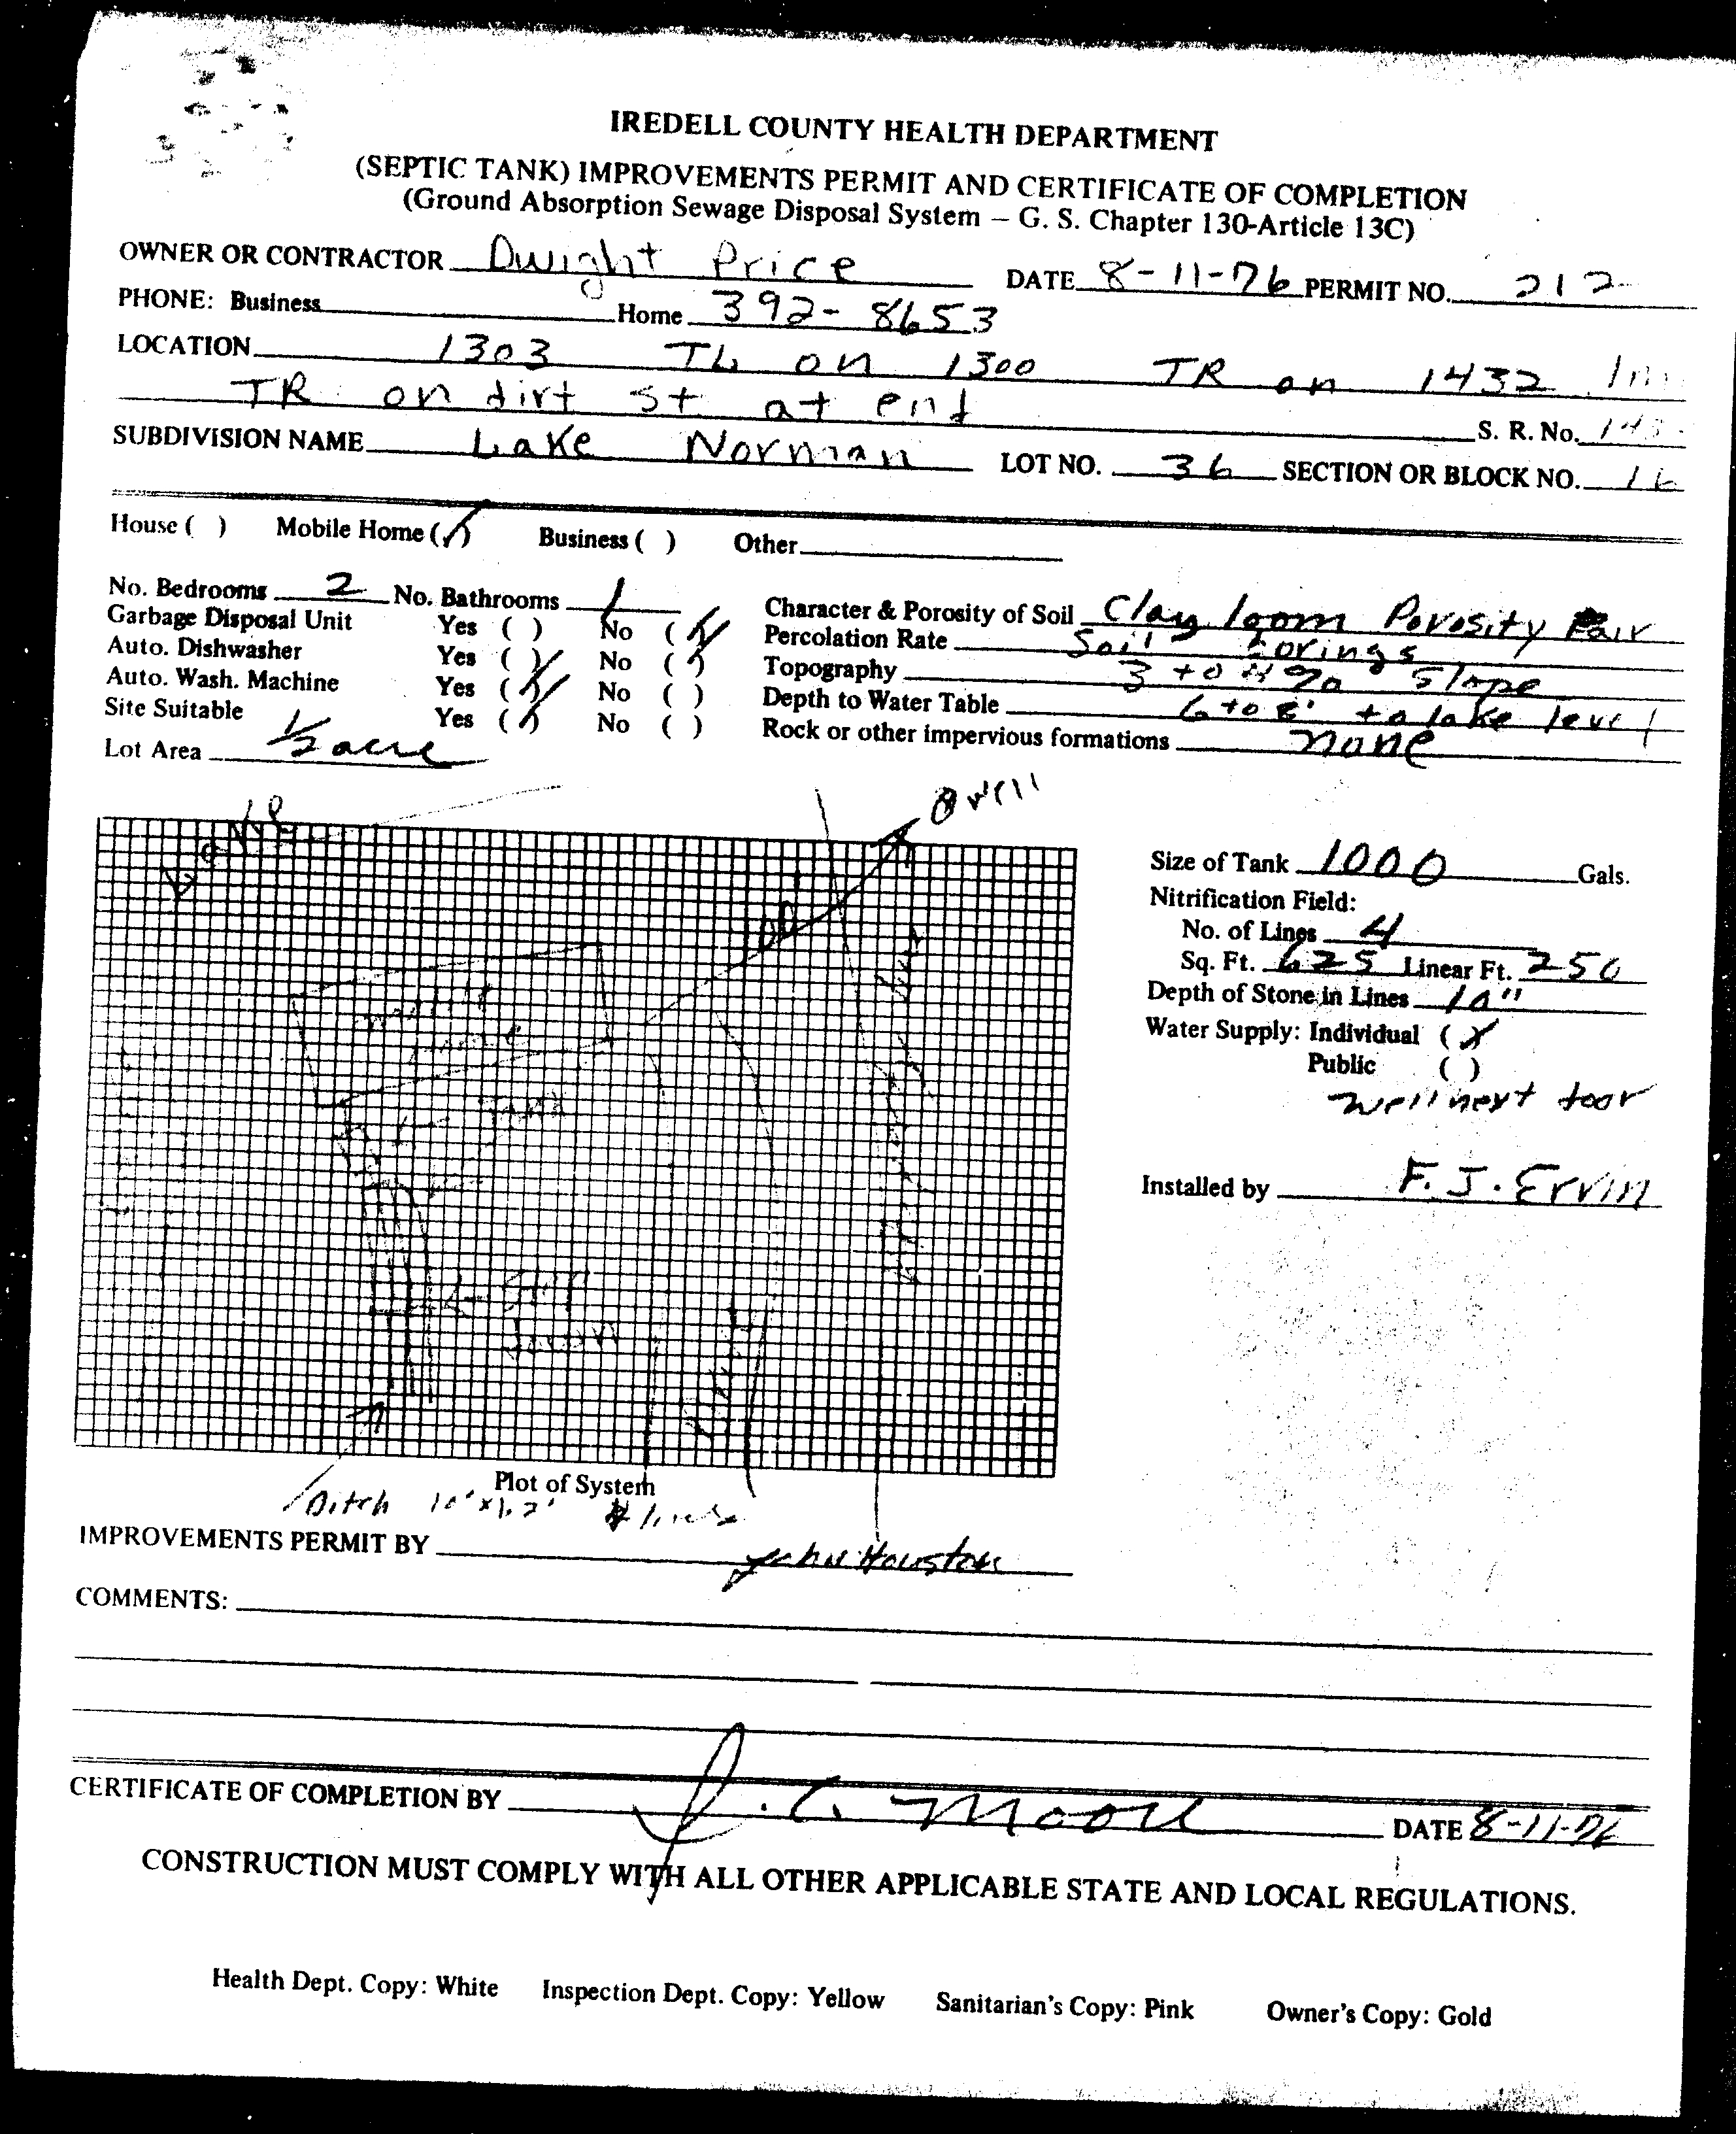 IREDELL COUNTY HEALTH DEPARTMENT
(SEPTIC TANK) IMPROVEMENTS PERMIT AND CERTIFICATE OF COMPLETION
(Ground Absorption Sewage Disposal System – G. S. Chapter 130-Article 13C)
OWNER OR CONTRACTOR Dwight Price DATE 8-11-76 PERMIT NO. 212
PHONE: Business Home 392-8653
LOCATION 1303 TL on 1300 TR on 1432
TR on dirt st at end S. R. No.
SUBDIVISION NAME Lake Norman LOT NO. 36 SECTION OR BLOCK NO. 16
House ( ) Mobile Home (✓) Business ( ) Other
No. Bedrooms 2 No. Bathrooms 1 Character & Porosity of Soil Clay loom Porosity Fair
Garbage Disposal Unit Yes ( ) No (✓) Percolation Rate Soil borings
Auto. Dishwasher Yes ( ) No (✓) Topography 3 to 4% Slope
Auto. Wash. Machine Yes (✓) No ( ) Depth to Water Table 6 to 8' to lake level
Site Suitable Yes (✓) No ( ) Rock or other impervious formations none
Lot Area 1/2 acre
well
Size of Tank 1000 Gals.
Nitrification Field:
No. of Lines 4
Sq. Ft. 625 Linear Ft. 250
Depth of Stone in Lines 10"
Water Supply: Individual (X)
Public ( )
well next door
Installed by F. J. Ervin
Plot of System
Ditch 4 lines
IMPROVEMENTS PERMIT BY John Houston
COMMENTS:
CERTIFICATE OF COMPLETION BY J. C. Moore DATE 8-11-76
CONSTRUCTION MUST COMPLY WITH ALL OTHER APPLICABLE STATE AND LOCAL REGULATIONS.
Health Dept. Copy: White Inspection Dept. Copy: Yellow Sanitarian's Copy: Pink Owner's Copy: Gold